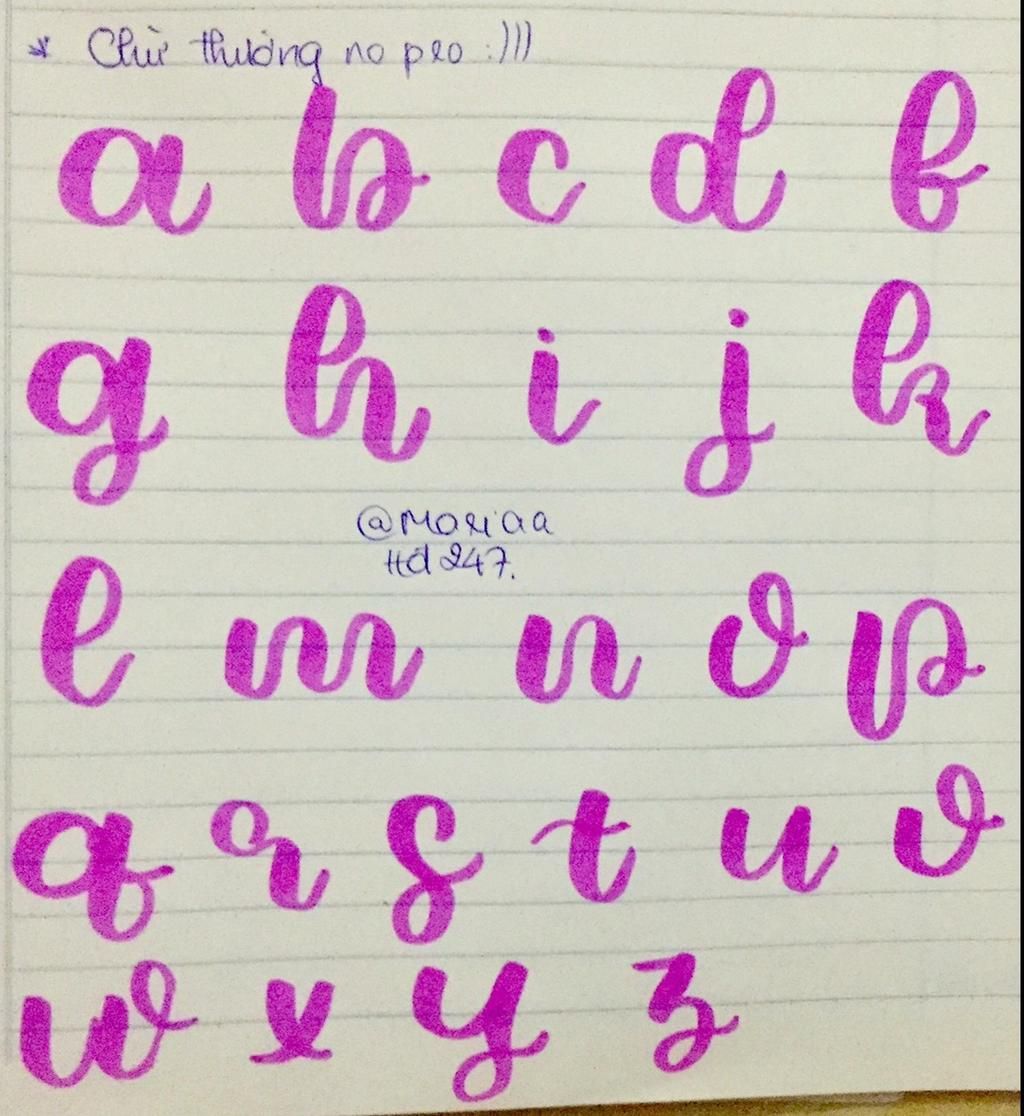 * Chữ thường no pro :)))
a b c d f
g h i j k
@Mariaa
Hd 247.
l m n o p
q r s t u v
w x y z